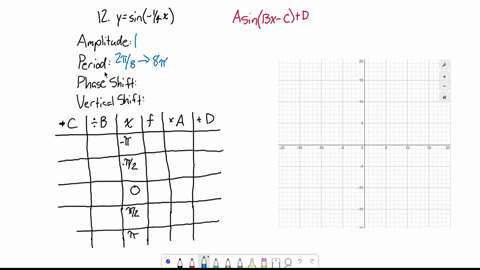 12. y=sin(-1/4x)
Asin(Bx-C)+D
Amplitude: 1
Period: 2π/B → 8π
Phase Shift:
Vertical Shift:
+C ÷B x f ×A +D
-π
-π/2
0
π/2
π
20
15
10
5
-20 -15 -10 -5 0 5 10 15 20
-5
-10
-15